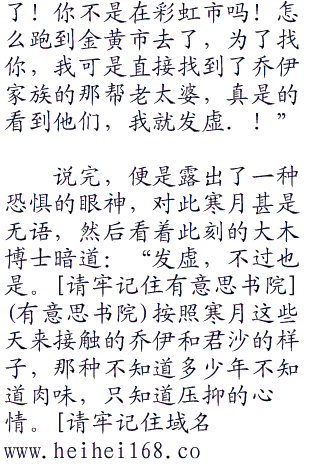 了！你不是在彩虹市吗！怎
么跑到金黄市去了，为了找
你，我可是直接找到了乔伊
家族的那帮老太婆，真是的
看到他们，我就发虚．！”
说完，便是露出了一种
恐惧的眼神，对此寒月甚是
无语，然后看着此刻的大木
博士暗道：“发虚，不过也
是。[请牢记住有意思书院]
(有意思书院)按照寒月这些
天来接触的乔伊和君沙的样
子，那种不知道多少年不知
道肉味，只知道压抑的心
情。[请牢记住域名
www.heihei168.co